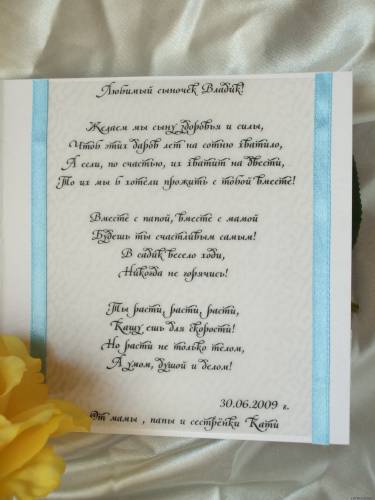 Любимый сыночек Владик!
Желаем мы сыну здоровья и силы,
Чтоб этих даров лет на сотню хватило,
А если, по счастью, их хватит на двести,
То их мы б хотели прожить с тобой вместе!
Вместе с папой, вместе с мамой
Будешь ты счастливым самым!
В садик весело ходи,
Никогда не горячись!
Ты расти, расти, расти,
Кашу ешь для скорости!
Но расти не только телом,
А умом, душой и делом!
30.06.2009 г.
От мамы , папы и сестрёнки Кати